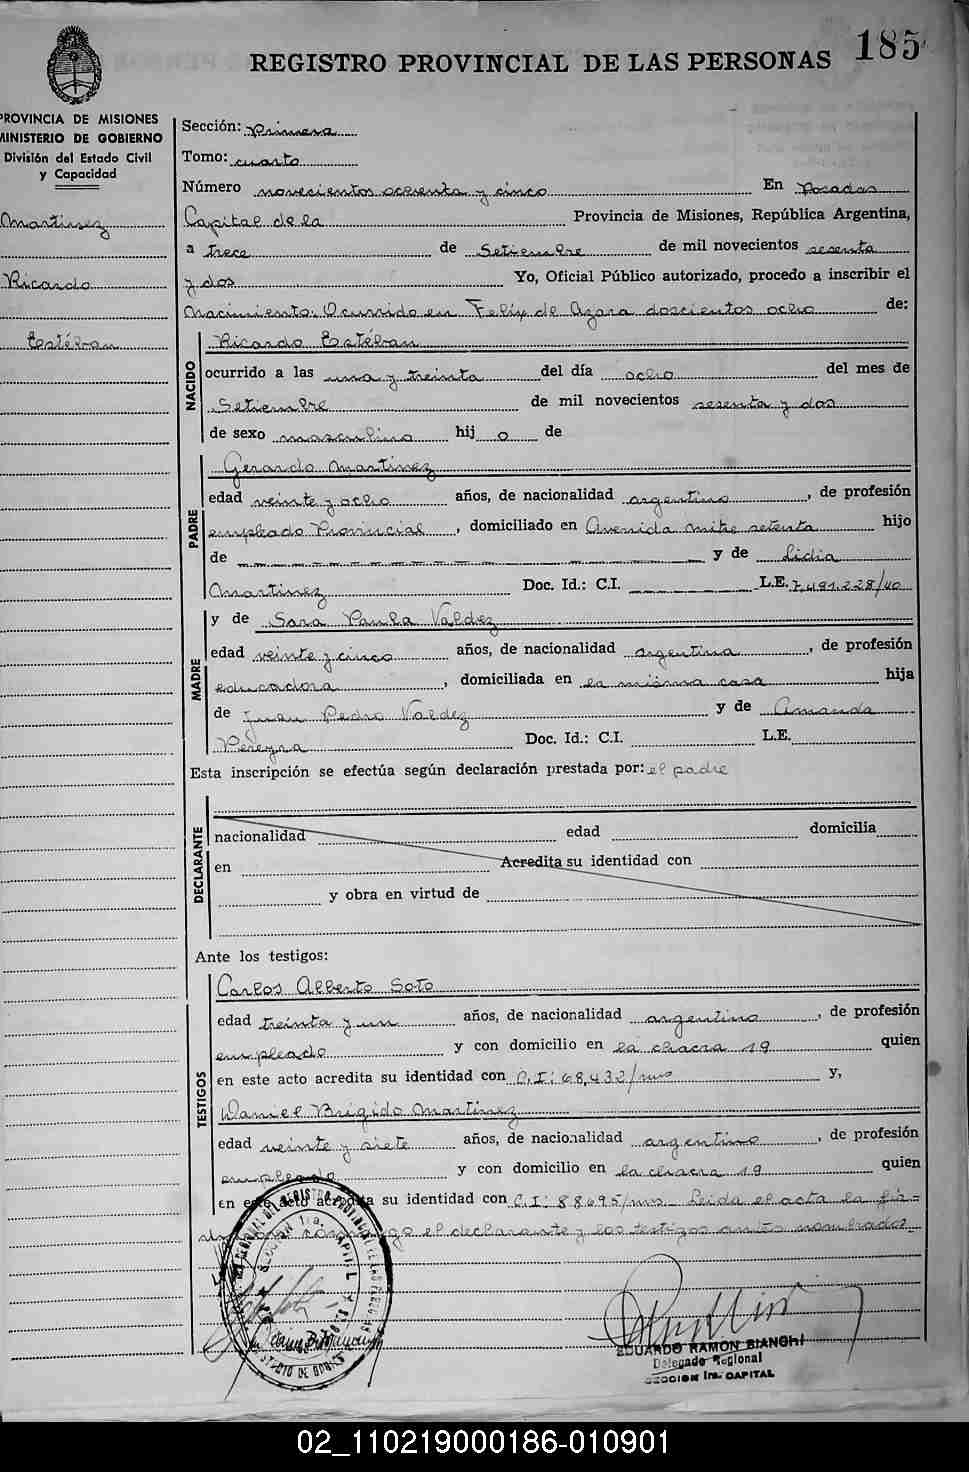 185
REGISTRO PROVINCIAL DE LAS PERSONAS
PROVINCIA DE MISIONES
MINISTERIO DE GOBIERNO
División del Estado Civil
y Capacidad
Martinez
Ricardo
Estéban
Sección: Primera
Tomo: cuarto
Número novecientos ochenta y cinco En Posadas
Capital de la Provincia de Misiones, República Argentina,
a trece de Setiembre de mil novecientos sesenta
y dos Yo, Oficial Público autorizado, procedo a inscribir el
Nacimiento: Ocurrido en Felix de Azara doscientos ocho de:
NACIDO
Ricardo Estéban
ocurrido a las una y treinta del día ocho del mes de
Setiembre de mil novecientos sesenta y dos
de sexo masculino hij o de
PADRE
Gerardo Martinez
edad veinte y ocho años, de nacionalidad argentino, de profesión
empleado Provincial, domiciliado en Avenida mitre setenta hijo
de y de Lidia
Martinez Doc. Id.: C.I. L.E. 7,491.228/40
MADRE
y de Sara Paula Valdez
edad veinte y cinco años, de nacionalidad argentina, de profesión
educadora, domiciliada en la misma casa hija
de Juan Pedro Valdez y de Amanda
Pereyra Doc. Id.: C.I. L.E.
Esta inscripción se efectúa según declaración prestada por: el padre
DECLARANTE
nacionalidad edad domicilia
en Acredita su identidad con
y obra en virtud de
Ante los testigos:
TESTIGOS
Carlos Alberto Soto
edad treinta y un años, de nacionalidad argentino, de profesión
empleado y con domicilio en la chacra 19 quien
en este acto acredita su identidad con C.I: 68,432/mns y,
Daniel Brigido Martinez
edad veinte y siete años, de nacionalidad argentino, de profesión
empleado y con domicilio en la chacra 19 quien
en este acto acredita su identidad con C.I: 88695/mns. Leida el acta la fir=
el declarante y los testigos antes nombrados
EDUARDO RAMON BIANCHI
Delegado Regional
SECCION 1ra. CAPITAL
02_110219000186-010901